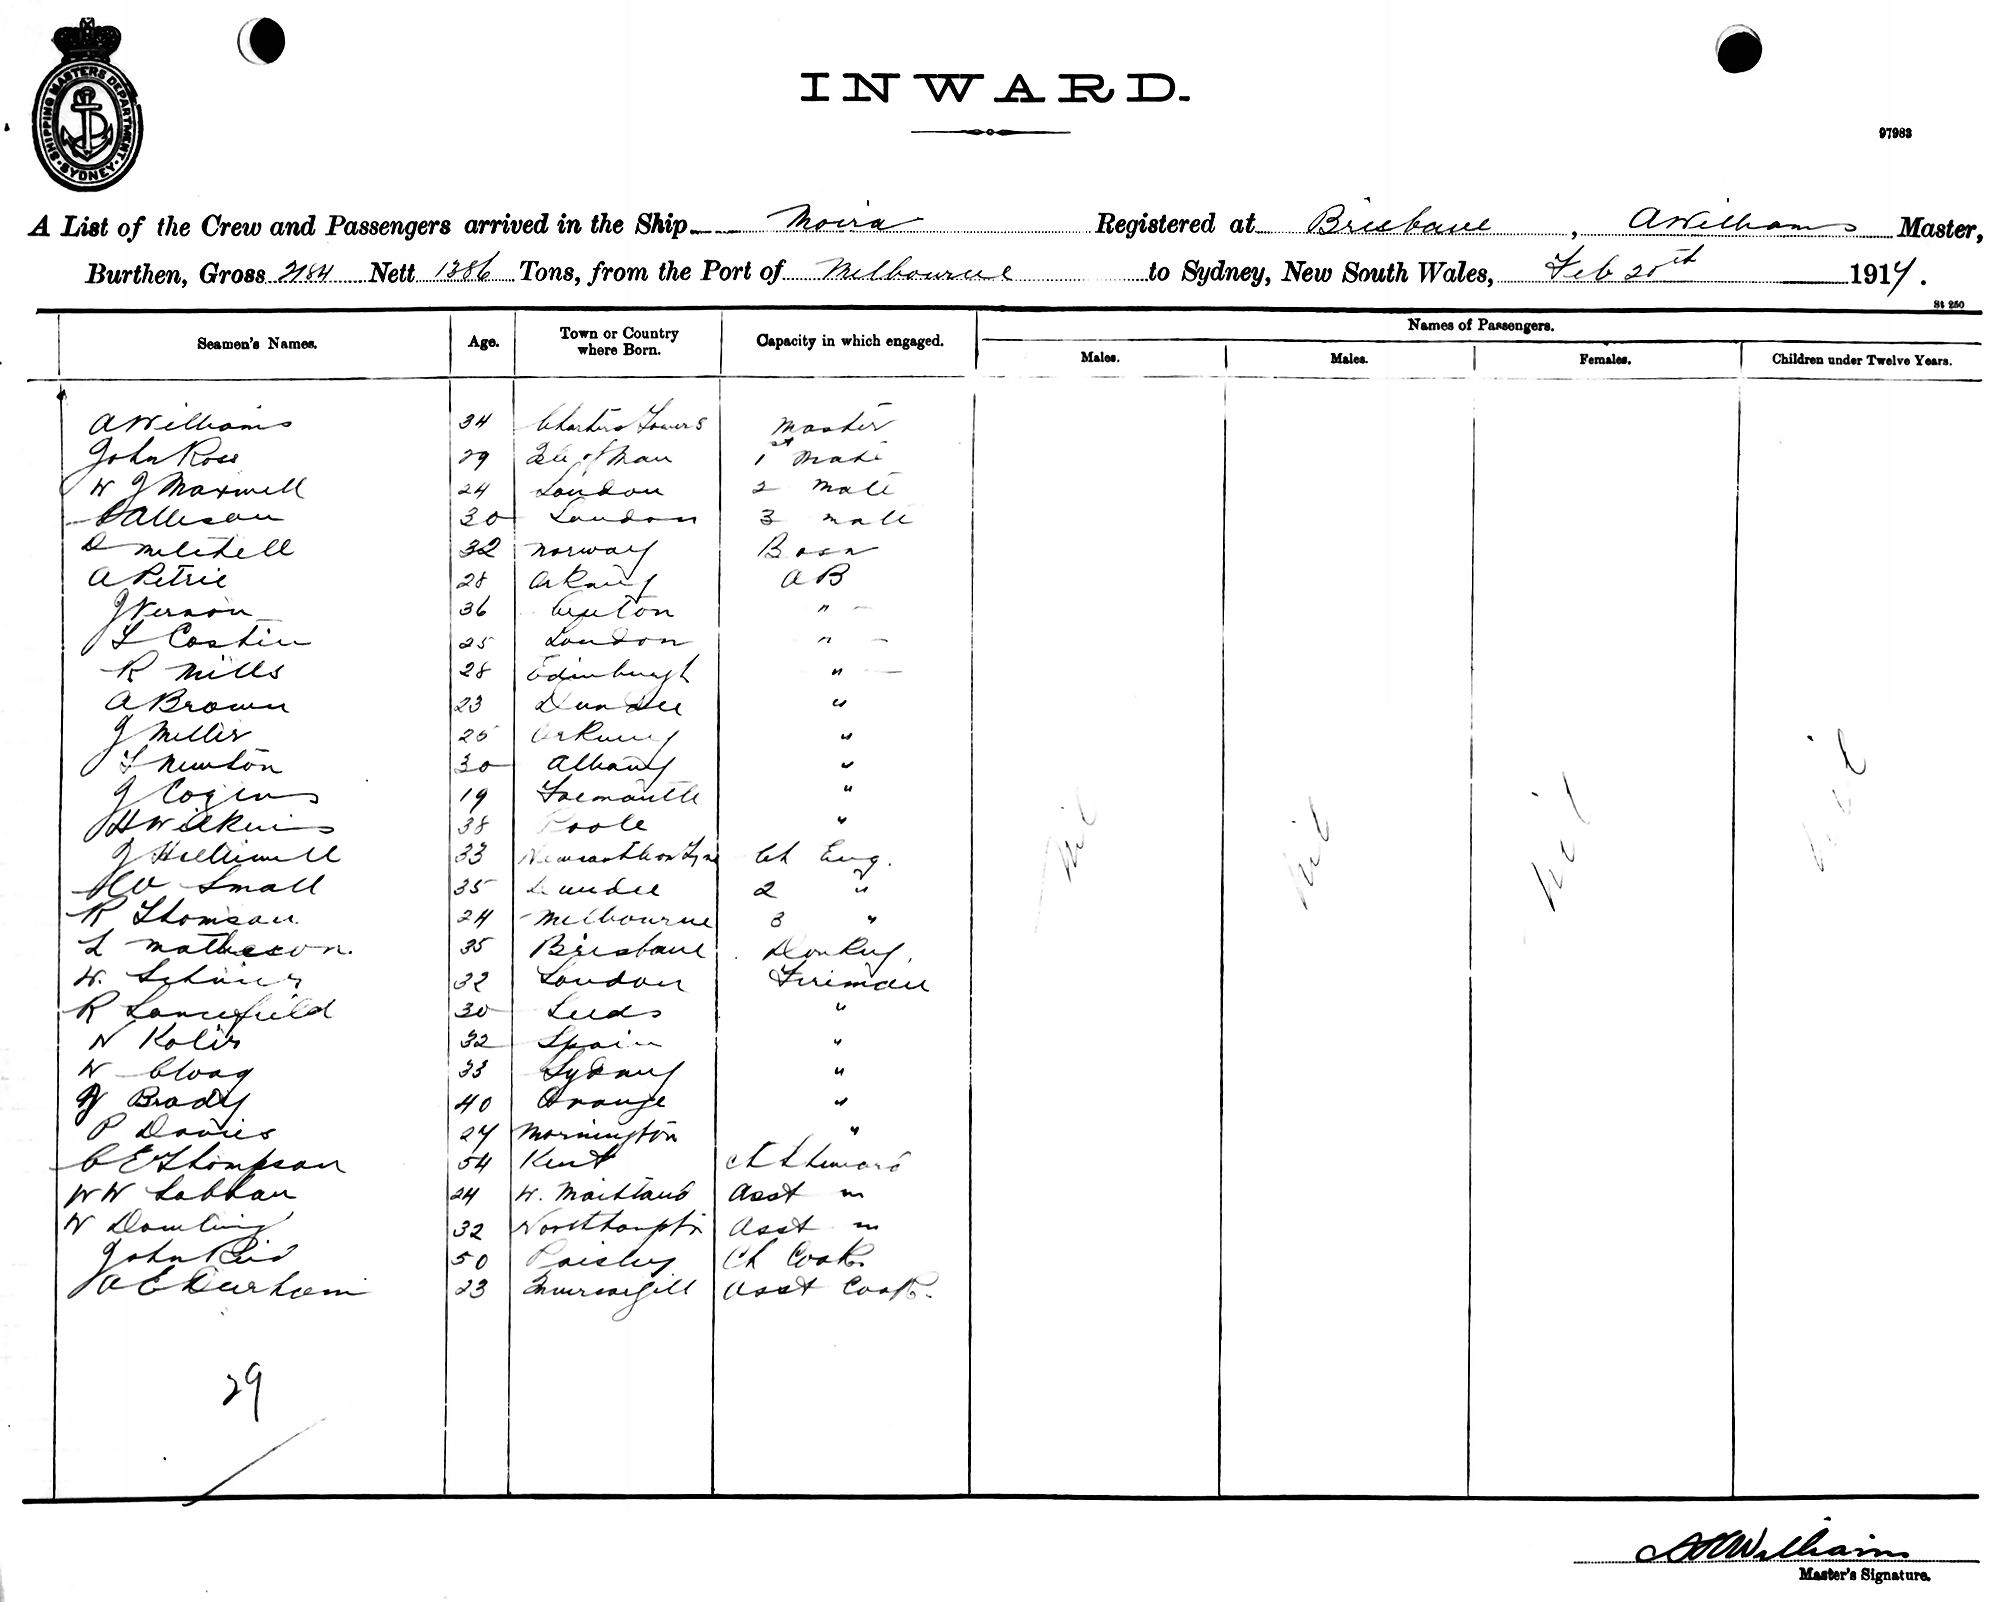 SHIPPING MASTERS DEPARTMENT
SYDNEY
INWARD.
97983
A List of the Crew and Passengers arrived in the Ship Moira Registered at Brisbane, A Williams Master,
Burthen, Gross 2184 Nett 1386 Tons, from the Port of Melbourne to Sydney, New South Wales, Feb 20th 1914.
St 250
Seamen's Names. Age. Town or Country where Born. Capacity in which engaged. Names of Passengers.
Males. Males. Females. Children under Twelve Years.
A Williams 34 Charters Towers Master
John Ross 29 Isle of Man 1st Mate
W J Maxwell 24 London 2 Mate
Allison 30 London 3 Mate
D Mitchell 32 Norway Bosn
A Petrie 28 Orkney AB
J Vernon 36 "
Costin 25 London "
R Mills 28 Edinburgh "
A Brown 23 Dundee "
J Miller 25 Orkney "
Newton 30 Albany "
J Cogins 19 Fremantle "
H Wilkins 38 Poole "
J Halliwell 33 Newcastle on Tyne Ch Eng.
Small 35 Dundee 2 "
R Thomson 24 Melbourne 3 "
L Matheson. 35 Brisbane Donkey
W. 32 London Fireman
R Lancefield 30 Leeds "
N Kolis 32 Spain "
W Cloag 33 Sydney "
J Brady 40 Orange "
P Davies 27 Mornington "
C E Thompson 54 Kent Ch Steward
W W 24 W. Maitland Asst "
W Dowling 32 Northampton Asst "
John Reid 50 Paisley Ch Cook
A E Durham 23 Invercargill Asst Cook.
nil nil nil nil
29
A Williams
Master's Signature.